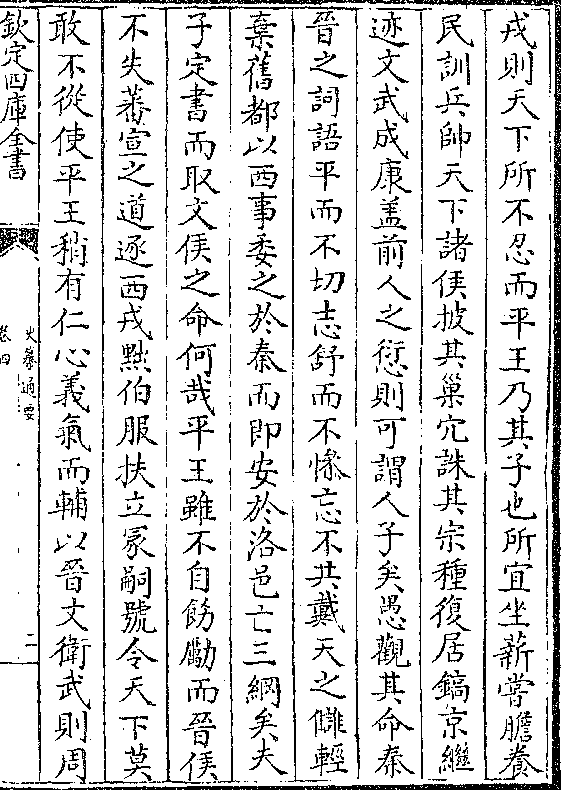 戎則天下所不忍而平王乃其子也所宜坐薪嘗膽養
民訓兵帥天下諸侯披其巢穴誅其宗種復居鎬京繼
迹文武成康盖前人之愆則可謂人子矣愚觀其命秦
晉之詞語平而不切志舒而不慘忘不共戴天之讎輕
棄舊都以西事委之於秦而即安於洛邑亡三綱矣夫
子定書而取文侯之命何哉平王雖不自飭勵而晉侯
不失蕃宣之道逐西戎黜伯服扶立冢嗣號令天下莫
敢不從使平王稍有仁心義氣而輔以晉文衛武則周
欽定四庫全書
史纂通要
卷四
二